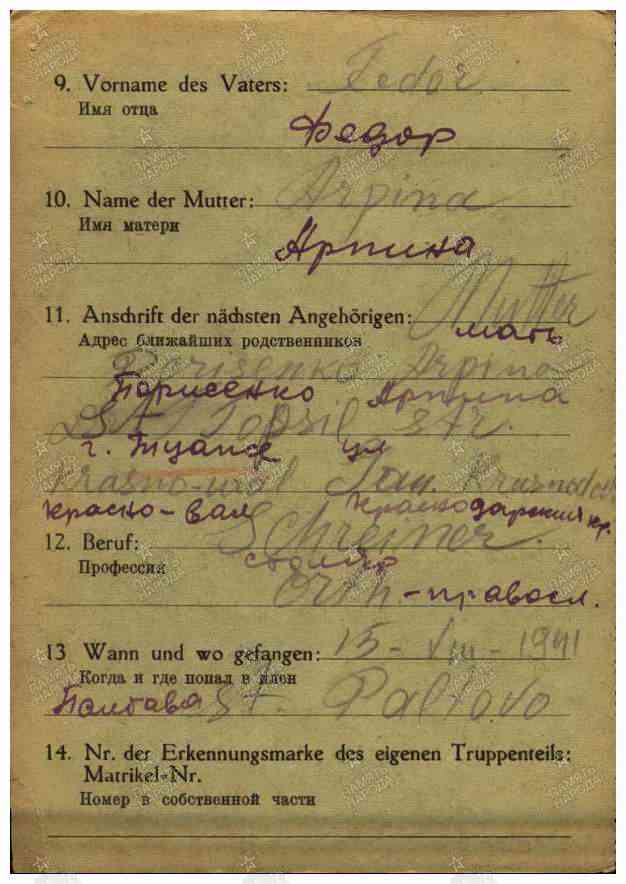 9. Vorname des Vaters: Fedor
Имя отца
Федор
10. Name der Mutter: Arpina
Имя матери
Арпина
11. Anschrift der nächsten Angehörigen: Mutter
мать
Адрес ближайших родственников
Parisenko Arpina
Парисенко Арпина
str.
г. Туапсе ул
Krasno-
красно-вал Краснодарский кр.
12. Beruf: Schreiner.
столяр
Профессия
orth-правосл.
13 Wann und wo gefangen: 15-VIII-1941
Когда и где попал в плен
Полтава st. Paltovo
14. Nr. der Erkennungsmarke des eigenen Truppenteils:
Matrikel-Nr.
Номер в собственной части